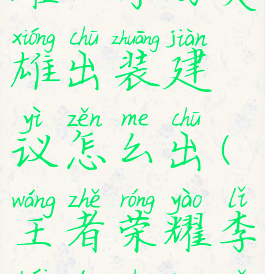 xióng chū zhuāng jiàn
雄出装建
yì zěn me chū
议怎么出(
wáng zhě róng yào lǐ
王者荣耀李